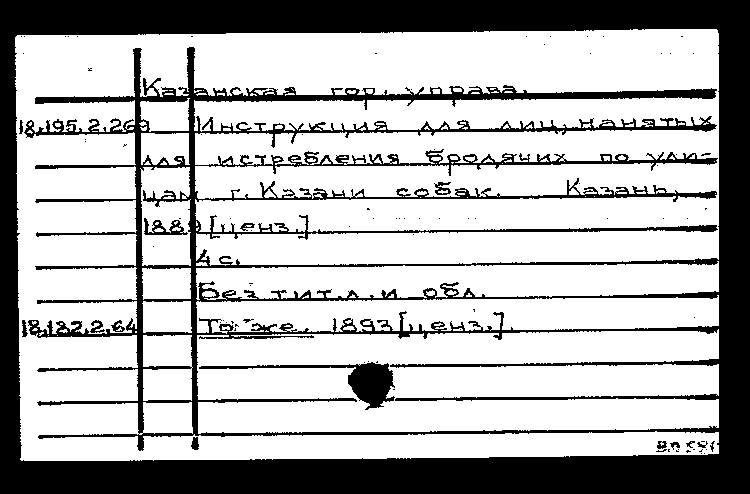 Казанская гор. управа.
18.195.2.269 Инструкция для лиц, нанятых
для истребления бродячих по ули-
цам г. Казани собак. Казань,
1889 [ценз.].
4 с.
Без тит. л. и обл.
18.182.2.64 То же. 1893 [ценз.].